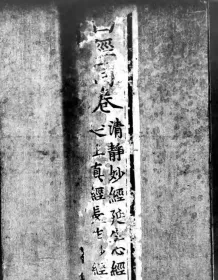 經同卷
清靜妙經延生心經
上真經長生妙經